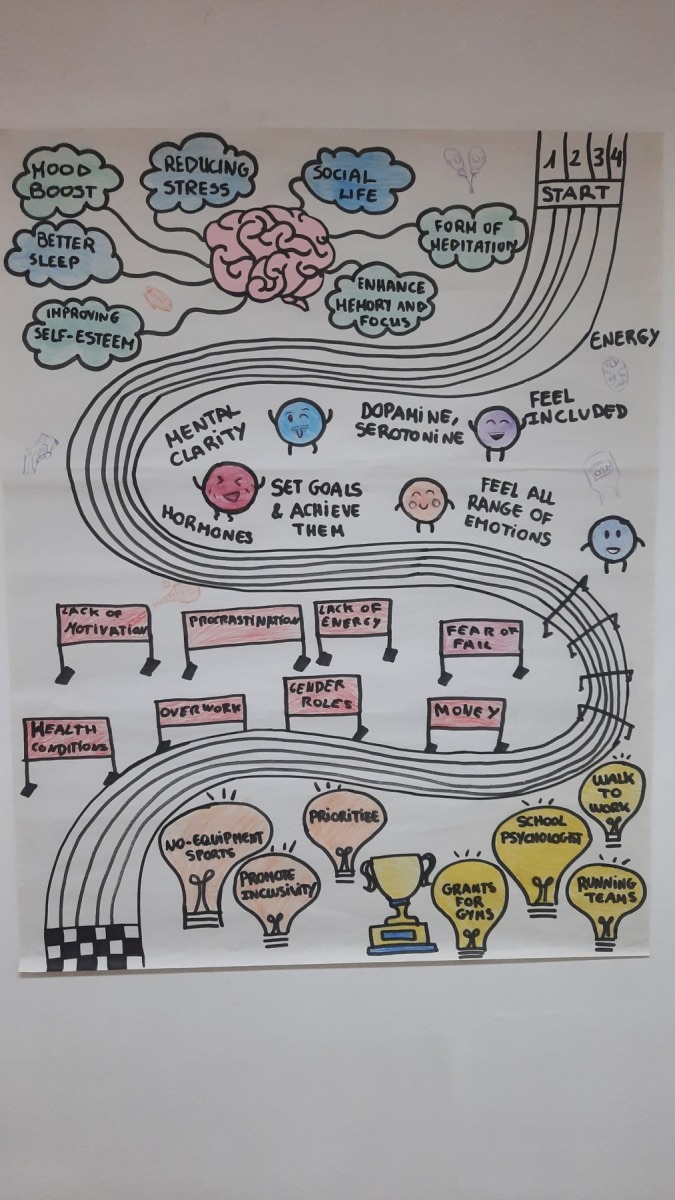 MOOD
BOOST
REDUCING
STRESS
SOCIAL
LIFE
1 2 3 4
START
BETTER
SLEEP
FORM OF
MEDITATION
IMPROVING
SELF-ESTEEM
ENHANCE
MEMORY AND
FOCUS
ENERGY
MENTAL
CLARITY
DOPAMINE,
SEROTONINE
FEEL
INCLUDED
HORMONES
SET GOALS
& ACHIEVE
THEM
FEEL ALL
RANGE OF
EMOTIONS
LACK OF
MOTIVATION
PROCRASTINATION
LACK OF
ENERGY
FEAR OF
FAIL
HEALTH
CONDITIONS
OVERWORK
GENDER
ROLES
MONEY
NO-EQUIPMENT
SPORTS
PROMOTE
INCLUSIVITY
PRIORITIZE
GRANTS
FOR
GYMS
SCHOOL
PSYCHOLOGIST
WALK
TO
WORK
RUNNING
TEAMS